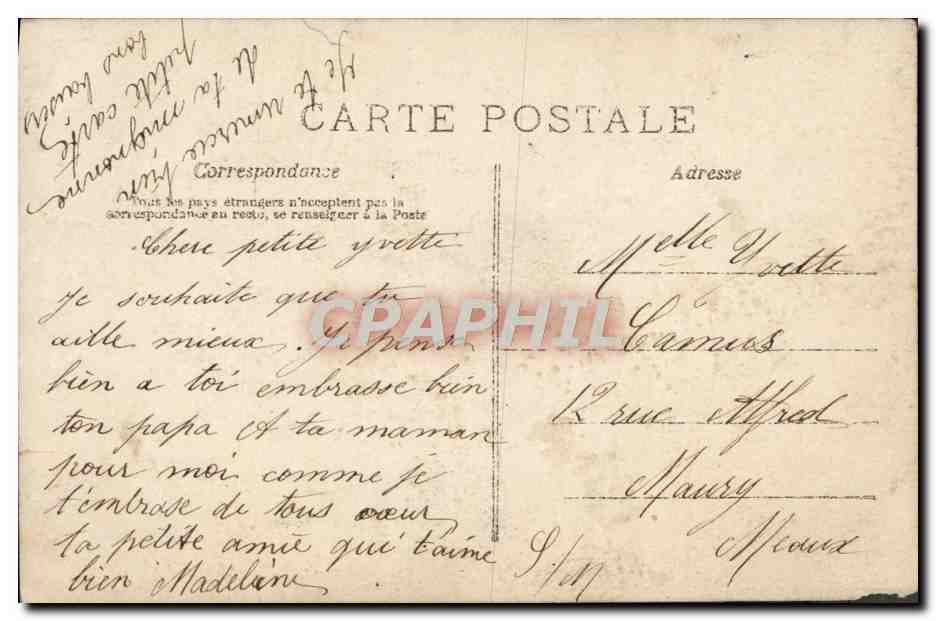 Je te remercie bien
de ta mignonne
petite carte
bons baisers
CARTE POSTALE
Correspondance
Tous les pays étrangers n'acceptent pas la
correspondance au recto, se renseigner à la Poste
Chere petite yvette
Je souhaite que tu
aille mieux, Je pense
bien a toi embrasse bien
ton papa et ta maman
pour moi comme je
t'embrase de tous cœur
ta petite amie qui t'aime
bien Madeleine
Adresse
Melle Yvette
Camus
12 rue Alfred
Maury
Meaux
S/M
CPAPHIL